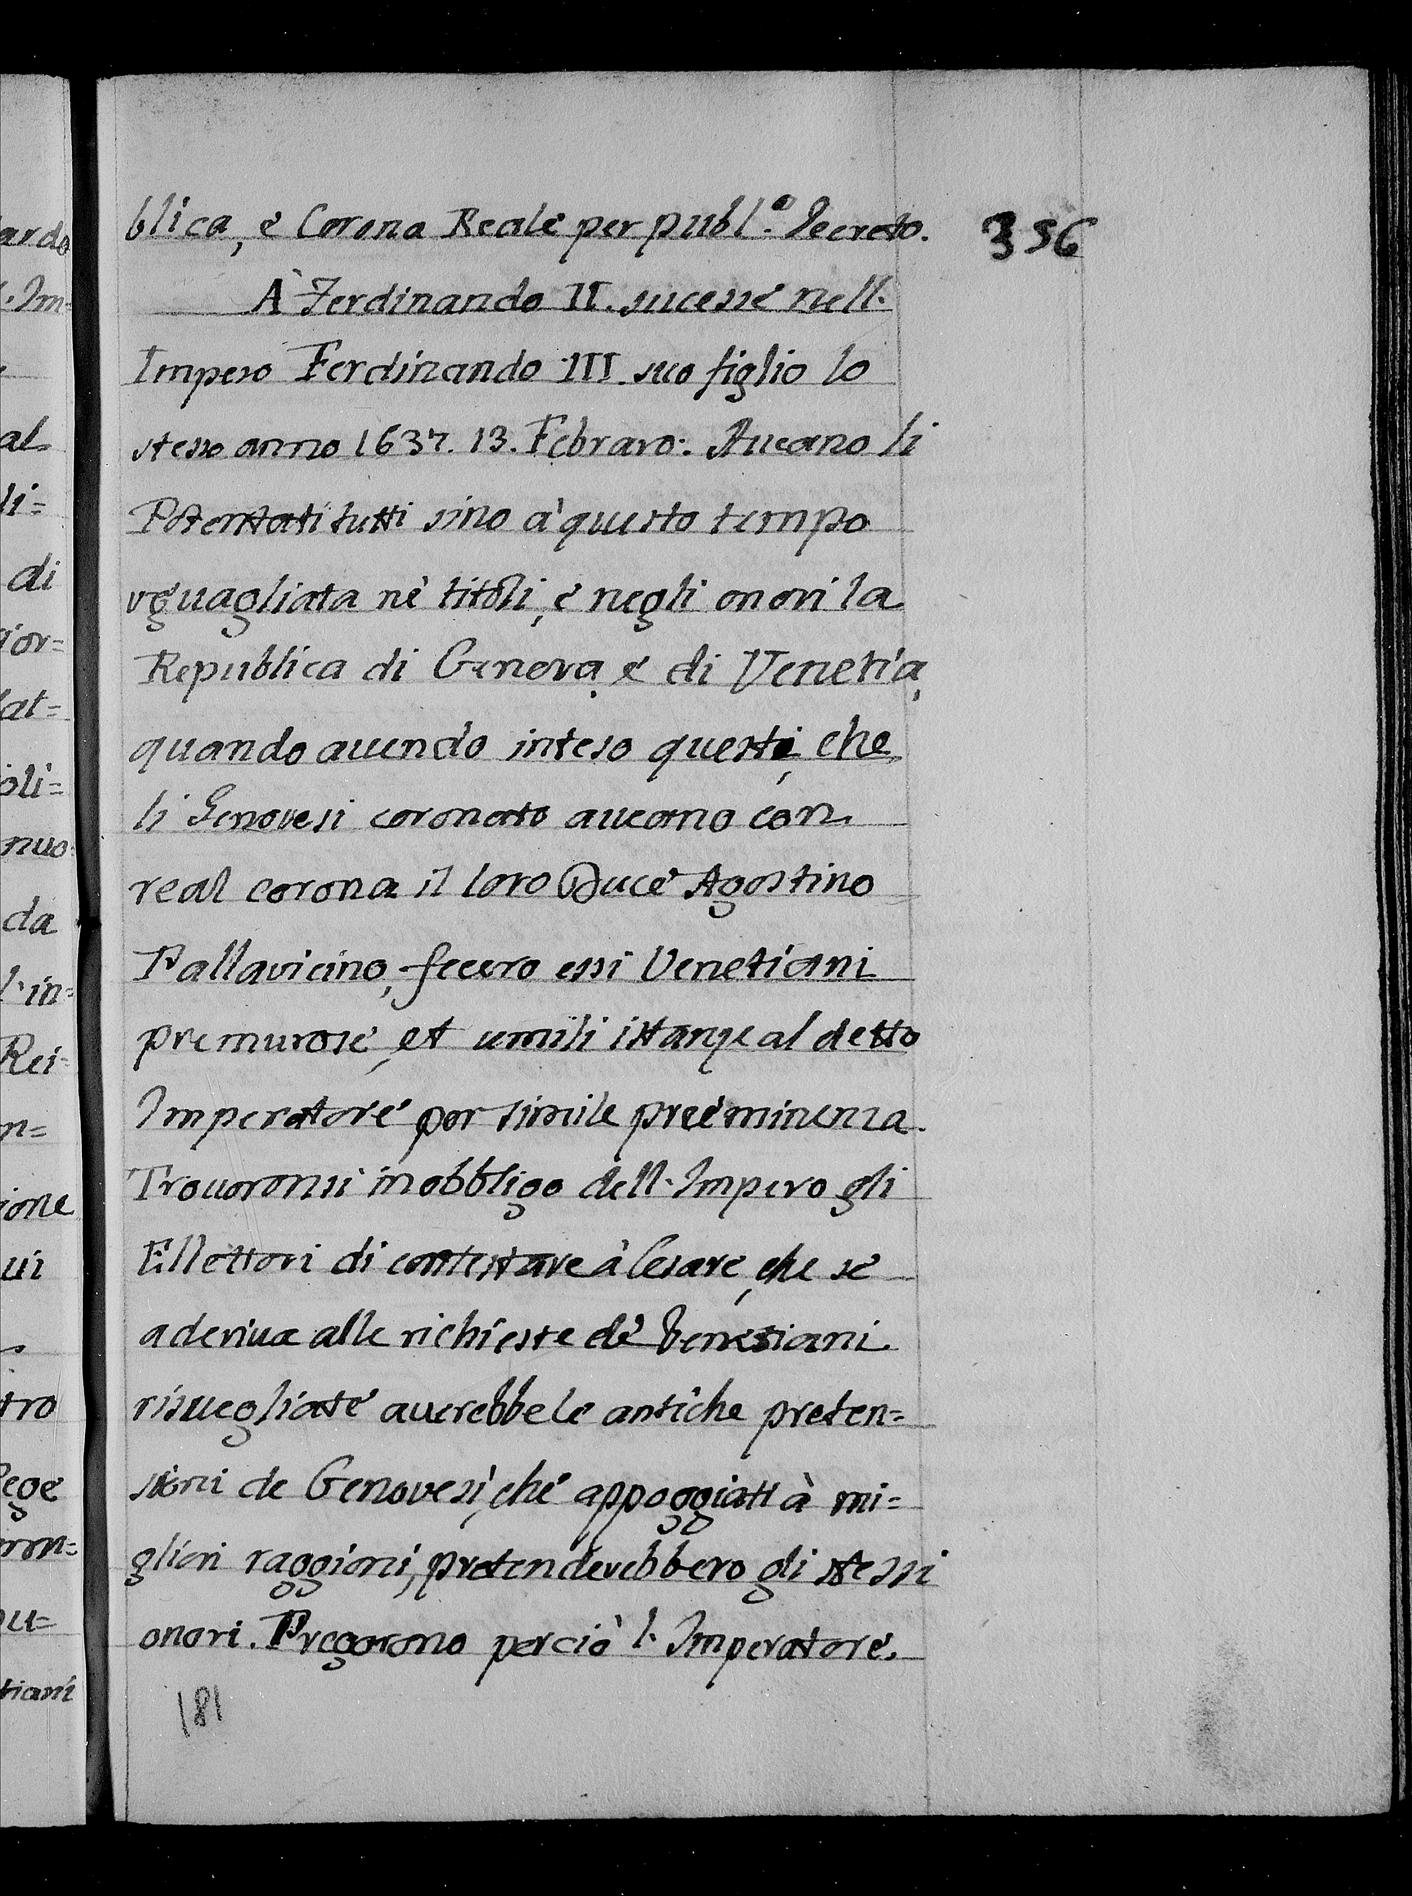 blica, e Corona Reale per publ.º decreto.
356
À Ferdinando II. sucesse nell'
Impero Ferdinando III. suo figlio lo
stesso anno 1637. 13. Febraro: Aueano li
Potentati tutti sino à questo tempo
vguagliata nè titoli, e negli onori la
Republica di Genova, e di Venetia,
quando auendo inteso questi, che
li Genovesi coronato aueano con
real corona il loro Duce Agostino
Pallavicino, fecero essi Venetiani
premurose, et umili istanze al detto
Imperatore per simile preeminenza.
Trouoronsi in obbligo dell'Impero gli
Ellettori di contestare à Cesare, che se
aderiua alle richieste dè Venetiani
risuegliate auerebbe le antiche preten=
sioni de Genovesi, che appoggiati à mi=
gliori raggioni, pretenderebbero gli stessi
onori. Pregorono perciò l'Imperatore,
181
ardo
l'Im=
al
li=
di
ior=
lat=
oli=
nuo
da
l'in=
Rei=
n=
ione
ui
tro
lege
mon=
ou=
tiani